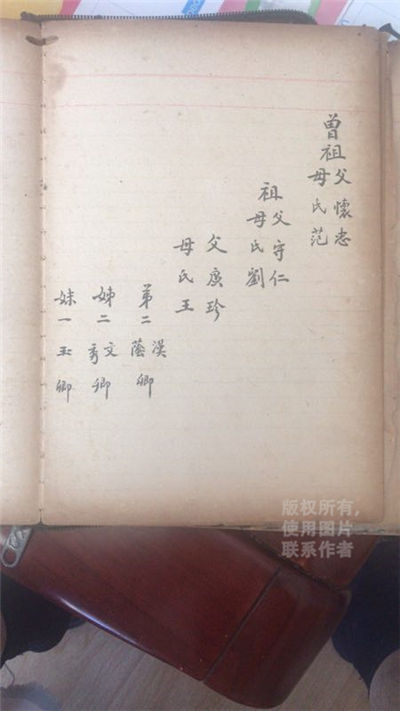 曾祖
父懷忠
母氏范
祖
父守仁
母氏劉
父廣珍
母氏王
弟二 漢蔭卿
姊二 文秀卿
妹一 玉卿
版权所有,
使用图片
联系作者